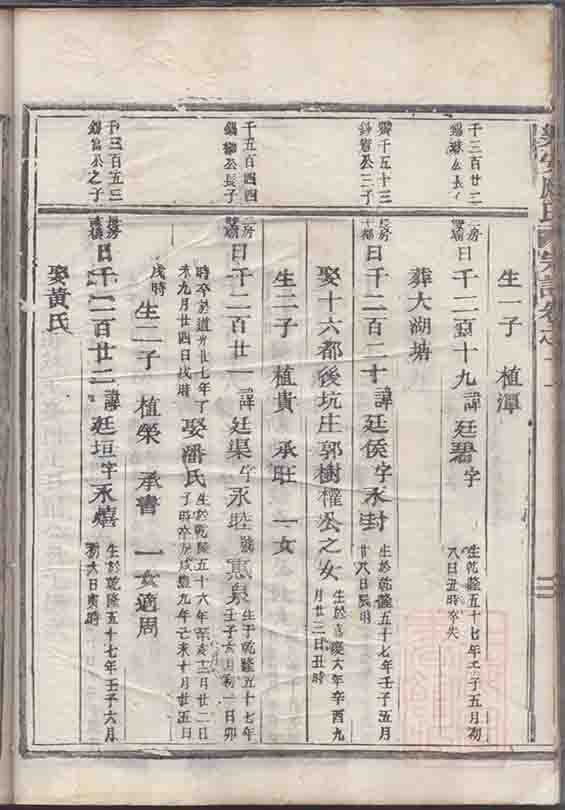 生一子 植潭
千三百廿三
錫公長子
二房
日千二百十九諱廷碧字
生乾隆五十七年壬子五月初
八日丑時卒失
葬大湖塘
千五十三
錫公三子
日千二百二十諱廷侯字永封
生於乾隆五十七年壬子五月
廿八日辰時
娶十六都後坑庄郭樹權公之女
生於嘉慶六年辛酉九
月廿三日丑時
生二子 植貴 承旺 一女
千五百四四
錫公長子
日千二百廿一諱廷渠字永睦號惠泉
生于乾隆五十七年
壬子六月初一日卯
時卒於道光廿七年丁
未九月廿四日戌時
娶潘氏
生於乾隆五十六年辛亥十二月廿二日
子時卒於咸豐九年己未十月廿五日
戌時
生二子 植榮 承書 一女適周
千三百五三
錫公之子
長房
日千二百廿二諱廷垣字永嬉
生於乾隆五十七年壬子六月
初六日寅時
娶黃氏